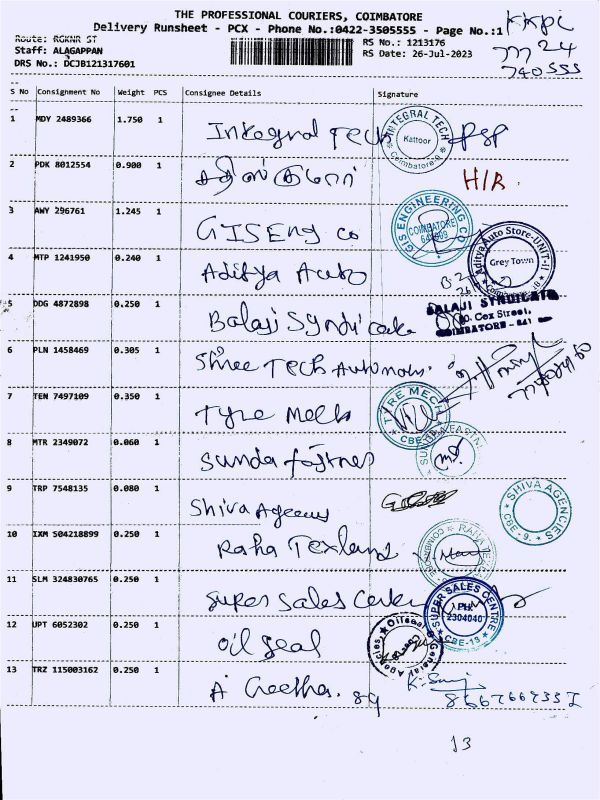 THE PROFESSIONAL COURIERS, COIMBATORE
Delivery Runsheet - PCX - Phone No.:0422-3505555 - Page No.:1
KKPL
Route: RGKNR ST
RS No.: 1213176
Staff: ALAGAPPAN
RS Date: 26-Jul-2023
DRS No.: DCJB121317601
740555
S No Consignment No Weight PCS Consignee Details Signature
1 MDY 2489366 1.750 1 Integral Tech
INTEGRAL TECH
Kattoor
Coimbatore-9
2 PDK 8012554 0.900 1 H/R.
3 AWY 296761 1.245 1 GIS Eng co
GIS ENGINEERING CO
COIMBATORE
4 MTP 1241950 0.240 1 Aditya Auto
Aditya Auto Store-UNIT-II
Grey Town
5 DDG 4872898 0.250 1 Balaji Syndicate
BALAJI SYNDICATE
Cox Street,
COIMBATORE - 641
6 PLN 1458469 0.305 1 Shree Tech
7 TEN 7497109 0.350 1 Tyre Mech
TYRE MECH
CBE
8 MTR 2349072 0.060 1 Sunda
9 TRP 7548135 0.080 1 Shiva Agencies
SHIVA AGENCIES
CBE - 9.
10 IXM 504218899 0.250 1 Raha
11 SLM 324830765 0.250 1 Super Sales Center
SUPER SALES CENTRE
PH:
2304040
CBE-18
12 UPT 6052302 0.250 1 Oil Seal
13 TRZ 115003162 0.250 1 A Geetha. 89
13